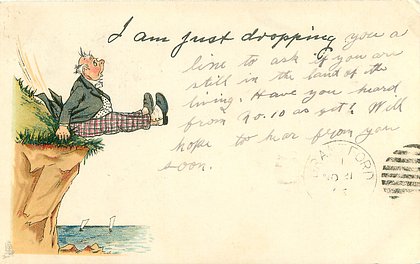 I am just dropping you a
line to ask if you are
still in the land of the
living. Have you heard
from No. 10 as yet? Will
hope to hear from you
soon.